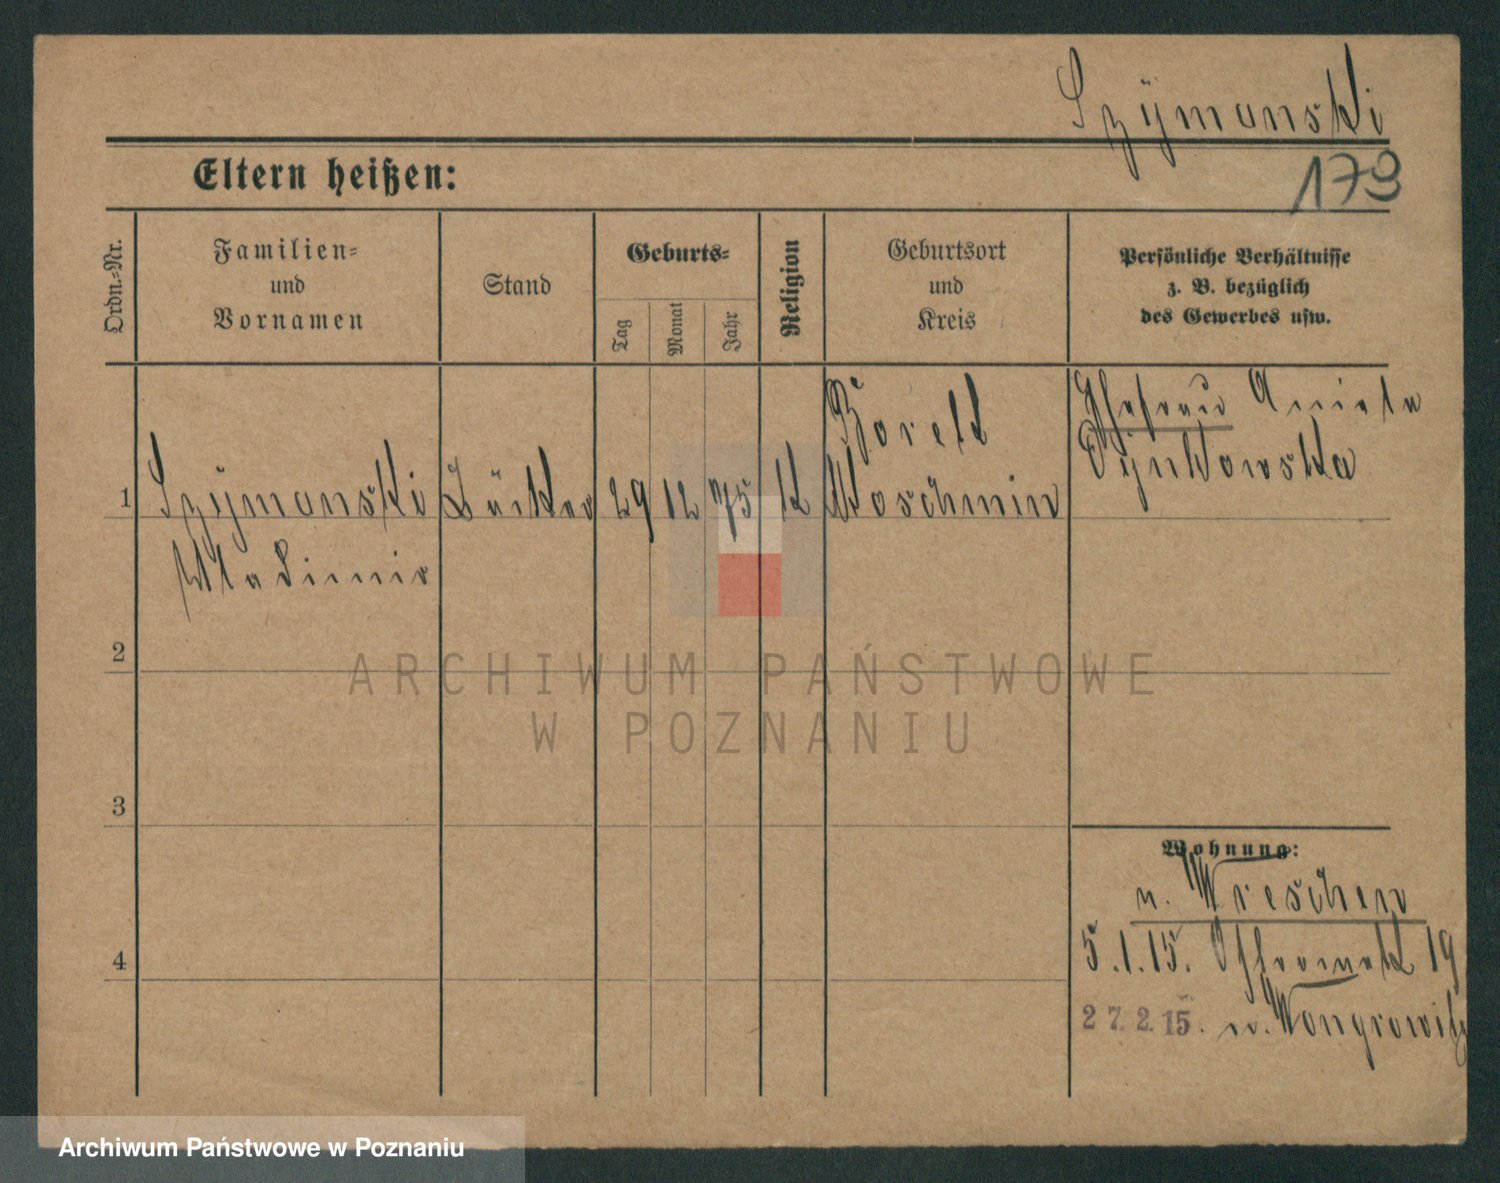 Szymanski
179
Eltern heißen:
Ordn.-Nr.
Familien-
und
Vornamen
Stand
Geburts-
Tag
Monat
Jahr
Religion
Geburtsort
und
Kreis
Persönliche Verhältnisse
z. B. bezüglich
des Gewerbes usw.
Borek
Ehefrau Aniela
1 Szymanski 29 12 75 k Koschmin
Wladimir
2
3
4
Wohnung:
n. Wreschen
5.1.15. 19
27.2.15. n. Wongrowitz
ARCHIWUM PAŃSTWOWE
W POZNANIU
Archiwum Państwowe w Poznaniu